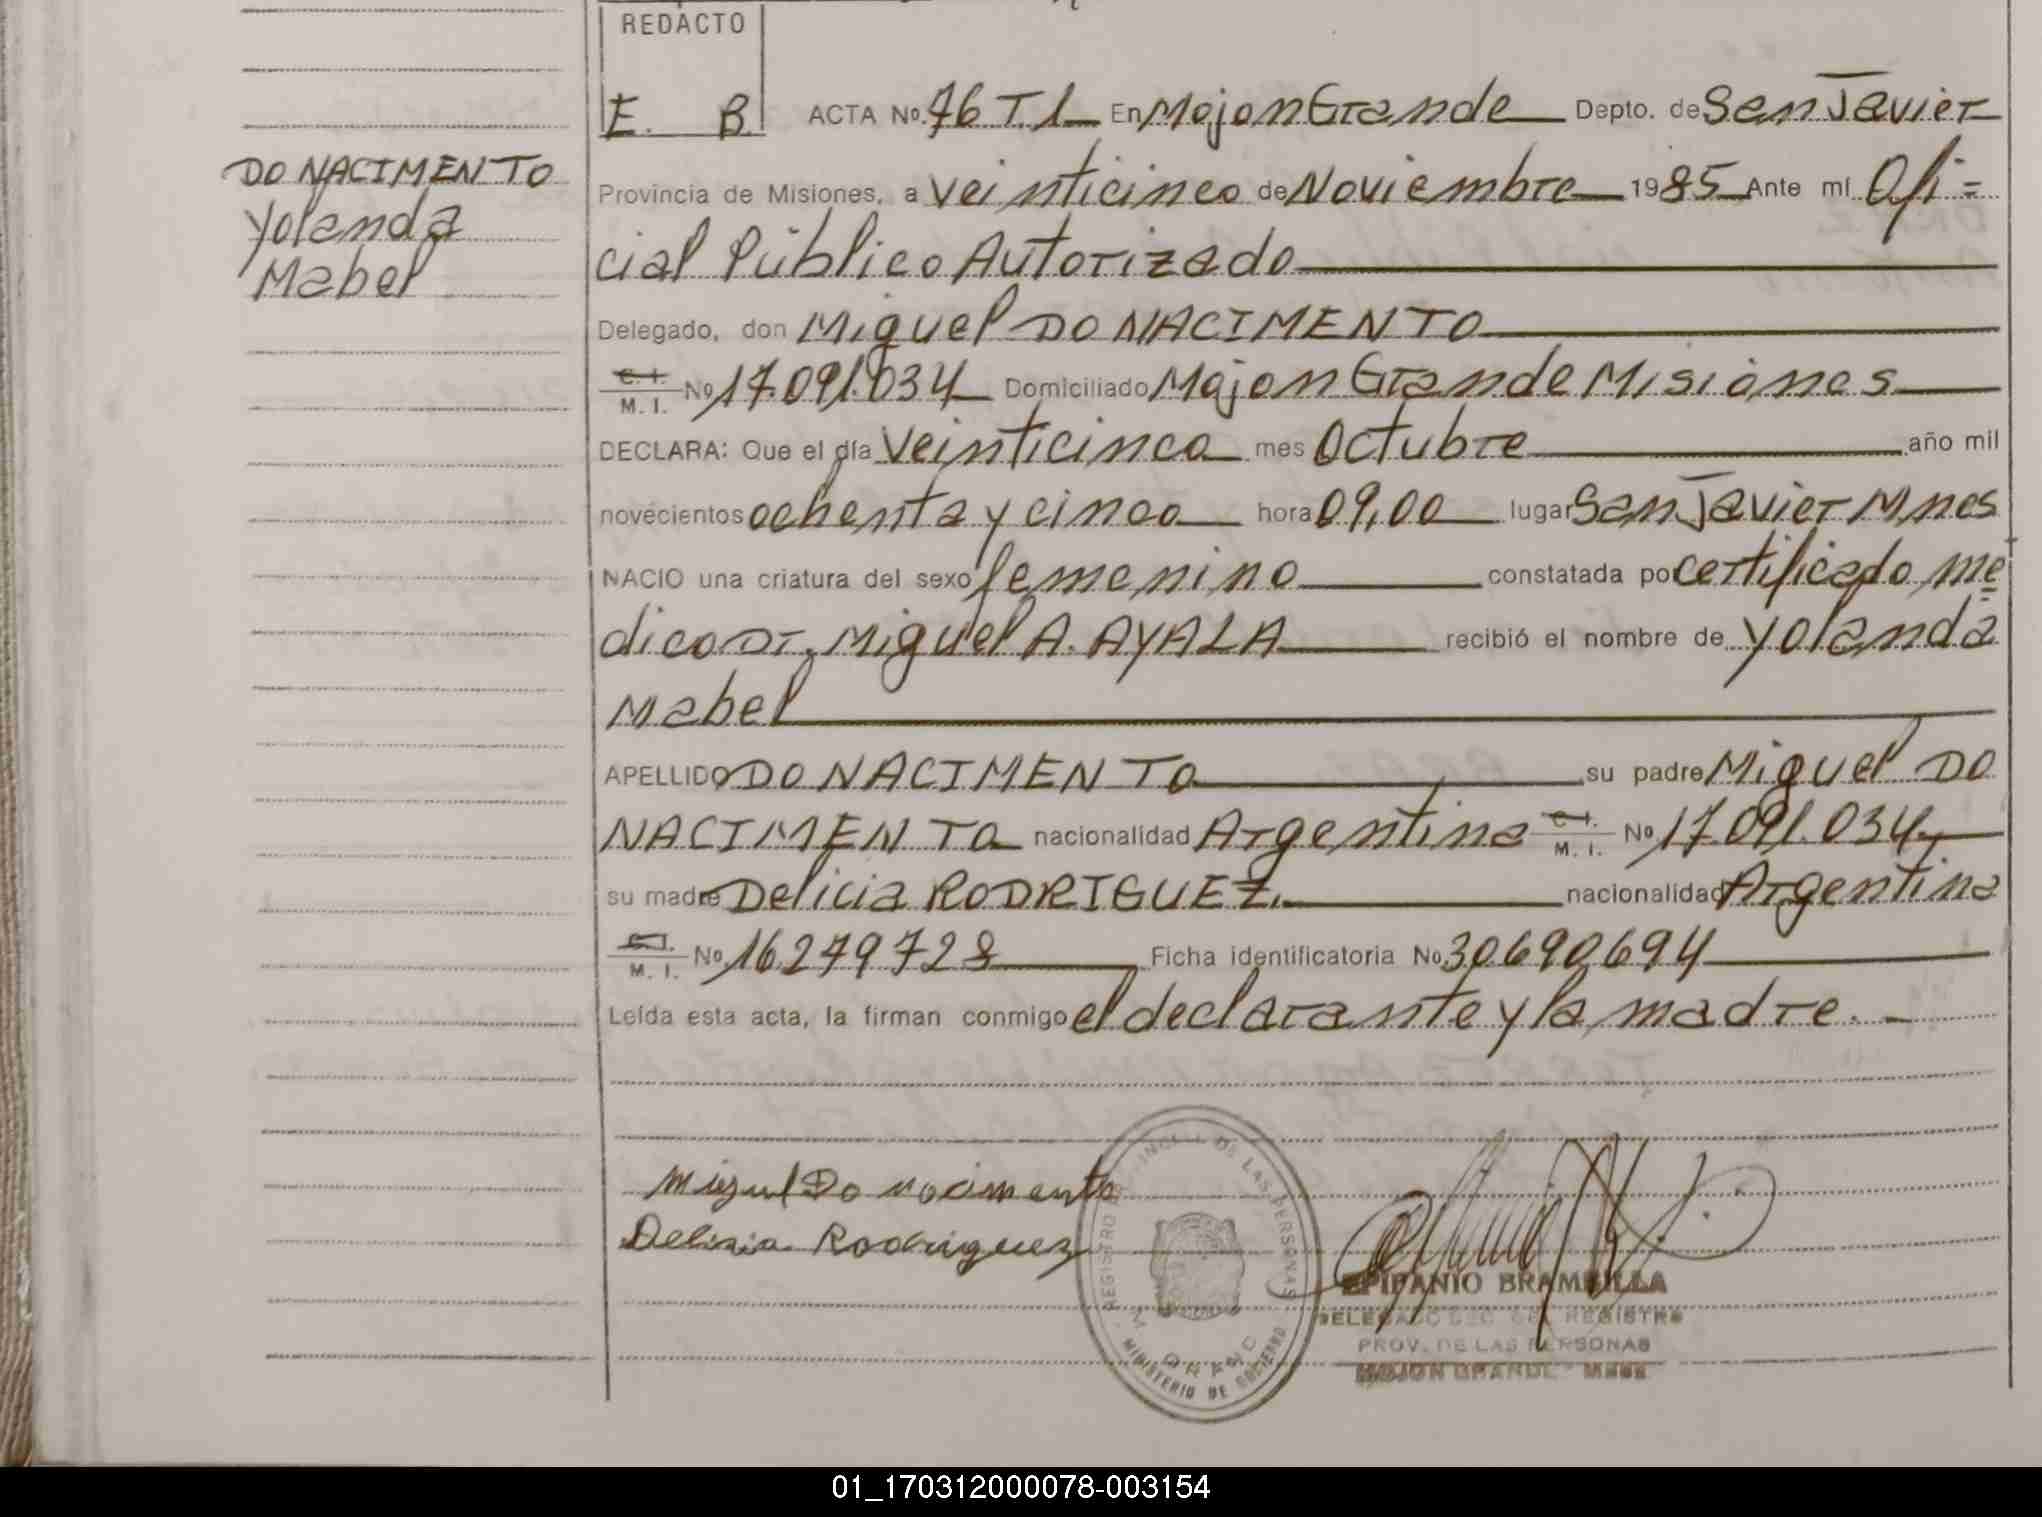 REDACTO
E. B.
ACTA No. 76 T1 En Mojon Grande Depto. de San Javier
DO NACIMENTO
Yolanda
Mabel
Provincia de Misiones, a veinticinco de Noviembre 1985 Ante mí Ofi=
cial Público Autorizado
Delegado, don Miguel DO NACIMENTO
C. I. / M. I. No 17.091.034 Domiciliado Mojon Grande Misiones
DECLARA: Que el día veinticinco mes Octubre año mil
novecientos ochenta y cinco hora 09,00 lugar San Javier Mnes
NACIO una criatura del sexo femenino constatada por certificado me
dico Dr. Miguel A. AYALA recibió el nombre de Yolanda
Mabel
APELLIDO DO NACIMENTO su padre Miguel DO
NACIMENTO nacionalidad Argentina C. I. / M. I. No 17.091.034,
su madre Delicia RODRIGUEZ. nacionalidad Argentina
C. I. / M. I. No. 16279728 Ficha identificatoria No 30690694
Leída esta acta, la firman conmigo el declarante y la madre. -
Miguel Do nacimento
Delisia Rodriguez
REGISTRO PROVINCIAL DE LAS PERSONAS
MINISTERIO DE GOBIERNO
EPIFANIO BRAMBILLA
DELEGADO SEC. DEL REGISTRO
PROV. DE LAS PERSONAS
MOJON GRANDE - MNES
01_170312000078-003154